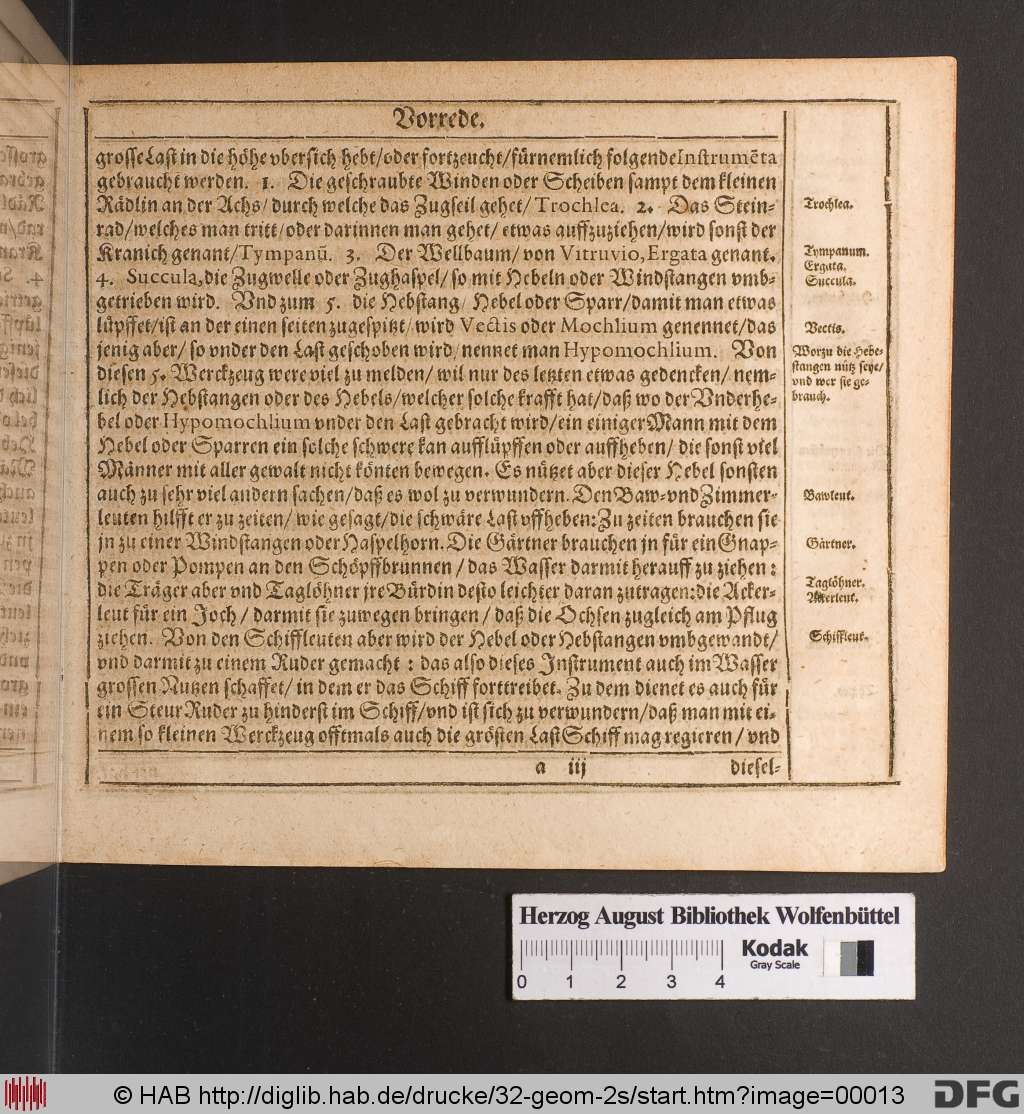 Vorrede.
grosse Last in die höhe vbersich hebt/oder fortzeucht/fürnemlich folgende Instrumēta
gebraucht werden. 1. Die geschraubte Winden oder Scheiben sampt dem kleinen
Rädlin an der Achs/durch welche das Zugseil gehet/Trochlea. 2. Das Stein-
rad/welches man tritt/oder darinnen man gehet/etwas auffzuziehen/wird sonst der
Kranich genant/Tympanū. 3. Der Wellbaum/von Vitruvio, Ergata genant.
4. Succula, die Zugwelle oder Zughaspel/so mit Hebeln oder Windstangen vmb-
getrieben wird. Vnd zum 5. die Hebstang/Hebel oder Sparr/damit man etwas
lüpffet/ist an der einen seiten zugespitzt/wird Vectis oder Mochlium genennet/das
jenig aber/so vnder den Last geschoben wird/nennet man Hypomochlium. Von
diesen 5. Werckzeug were viel zu melden/wil nur des letzten etwas gedencken/nem-
lich der Hebstangen oder des Hebels/welcher solche krafft hat/daß wo der Vnderhe-
bel oder Hypomochlium vnder den Last gebracht wird/ein einiger Mann mit dem
Hebel oder Sparren ein solche schwere kan aufflüpffen oder auffheben/die sonst viel
Männer mit aller gewalt nicht könten bewegen. Es nützet aber dieser Hebel sonsten
auch zu sehr viel andern sachen/daß es wol zu verwundern. Den Baw-vnd Zimmer-
leuten hilfft er zu zeiten/wie gesagt/die schwäre Last vffheben: Zu zeiten brauchen sie
jn zu einer Windstangen oder Haspelhorn. Die Gärtner brauchen jn für ein Gnap-
pen oder Pompen an den Schöpffbrunnen/das Wasser darmit herauff zu ziehen:
die Träger aber vnd Taglöhner jre Bürdin desto leichter daran zutragen: die Acker-
leut für ein Joch/darmit sie zuwegen bringen/daß die Ochsen zugleich am Pflug
ziehen. Von den Schiffleuten aber wird der Hebel oder Hebstangen vmbgewandt/
vnd darmit zu einem Ruder gemacht: das also dieses Instrument auch im Wasser
grossen Nutzen schaffet/in dem er das Schiff forttreibet. Zu dem dienet es auch für
ein Steur Ruder zu hinderst im Schiff/vnd ist sich zu verwundern/daß man mit ei-
nem so kleinen Werckzeug offtmals auch die grösten Last Schiff mag regieren/vnd
a iij
diesel-
Trochlea.
Tympanum.
Ergata.
Succula.
Vectis.
Worzu die Hebe-
stangen nütz seye/
vnd wer sie ge-
brauch.
Bawleut.
Gärtner.
Taglöhner.
Akerleut.
Schiffleut.
Herzog August Bibliothek Wolfenbüttel
Kodak
Gray Scale
0 1 2 3 4
© HAB http://diglib.hab.de/drucke/32-geom-2s/start.htm?image=00013
DFG